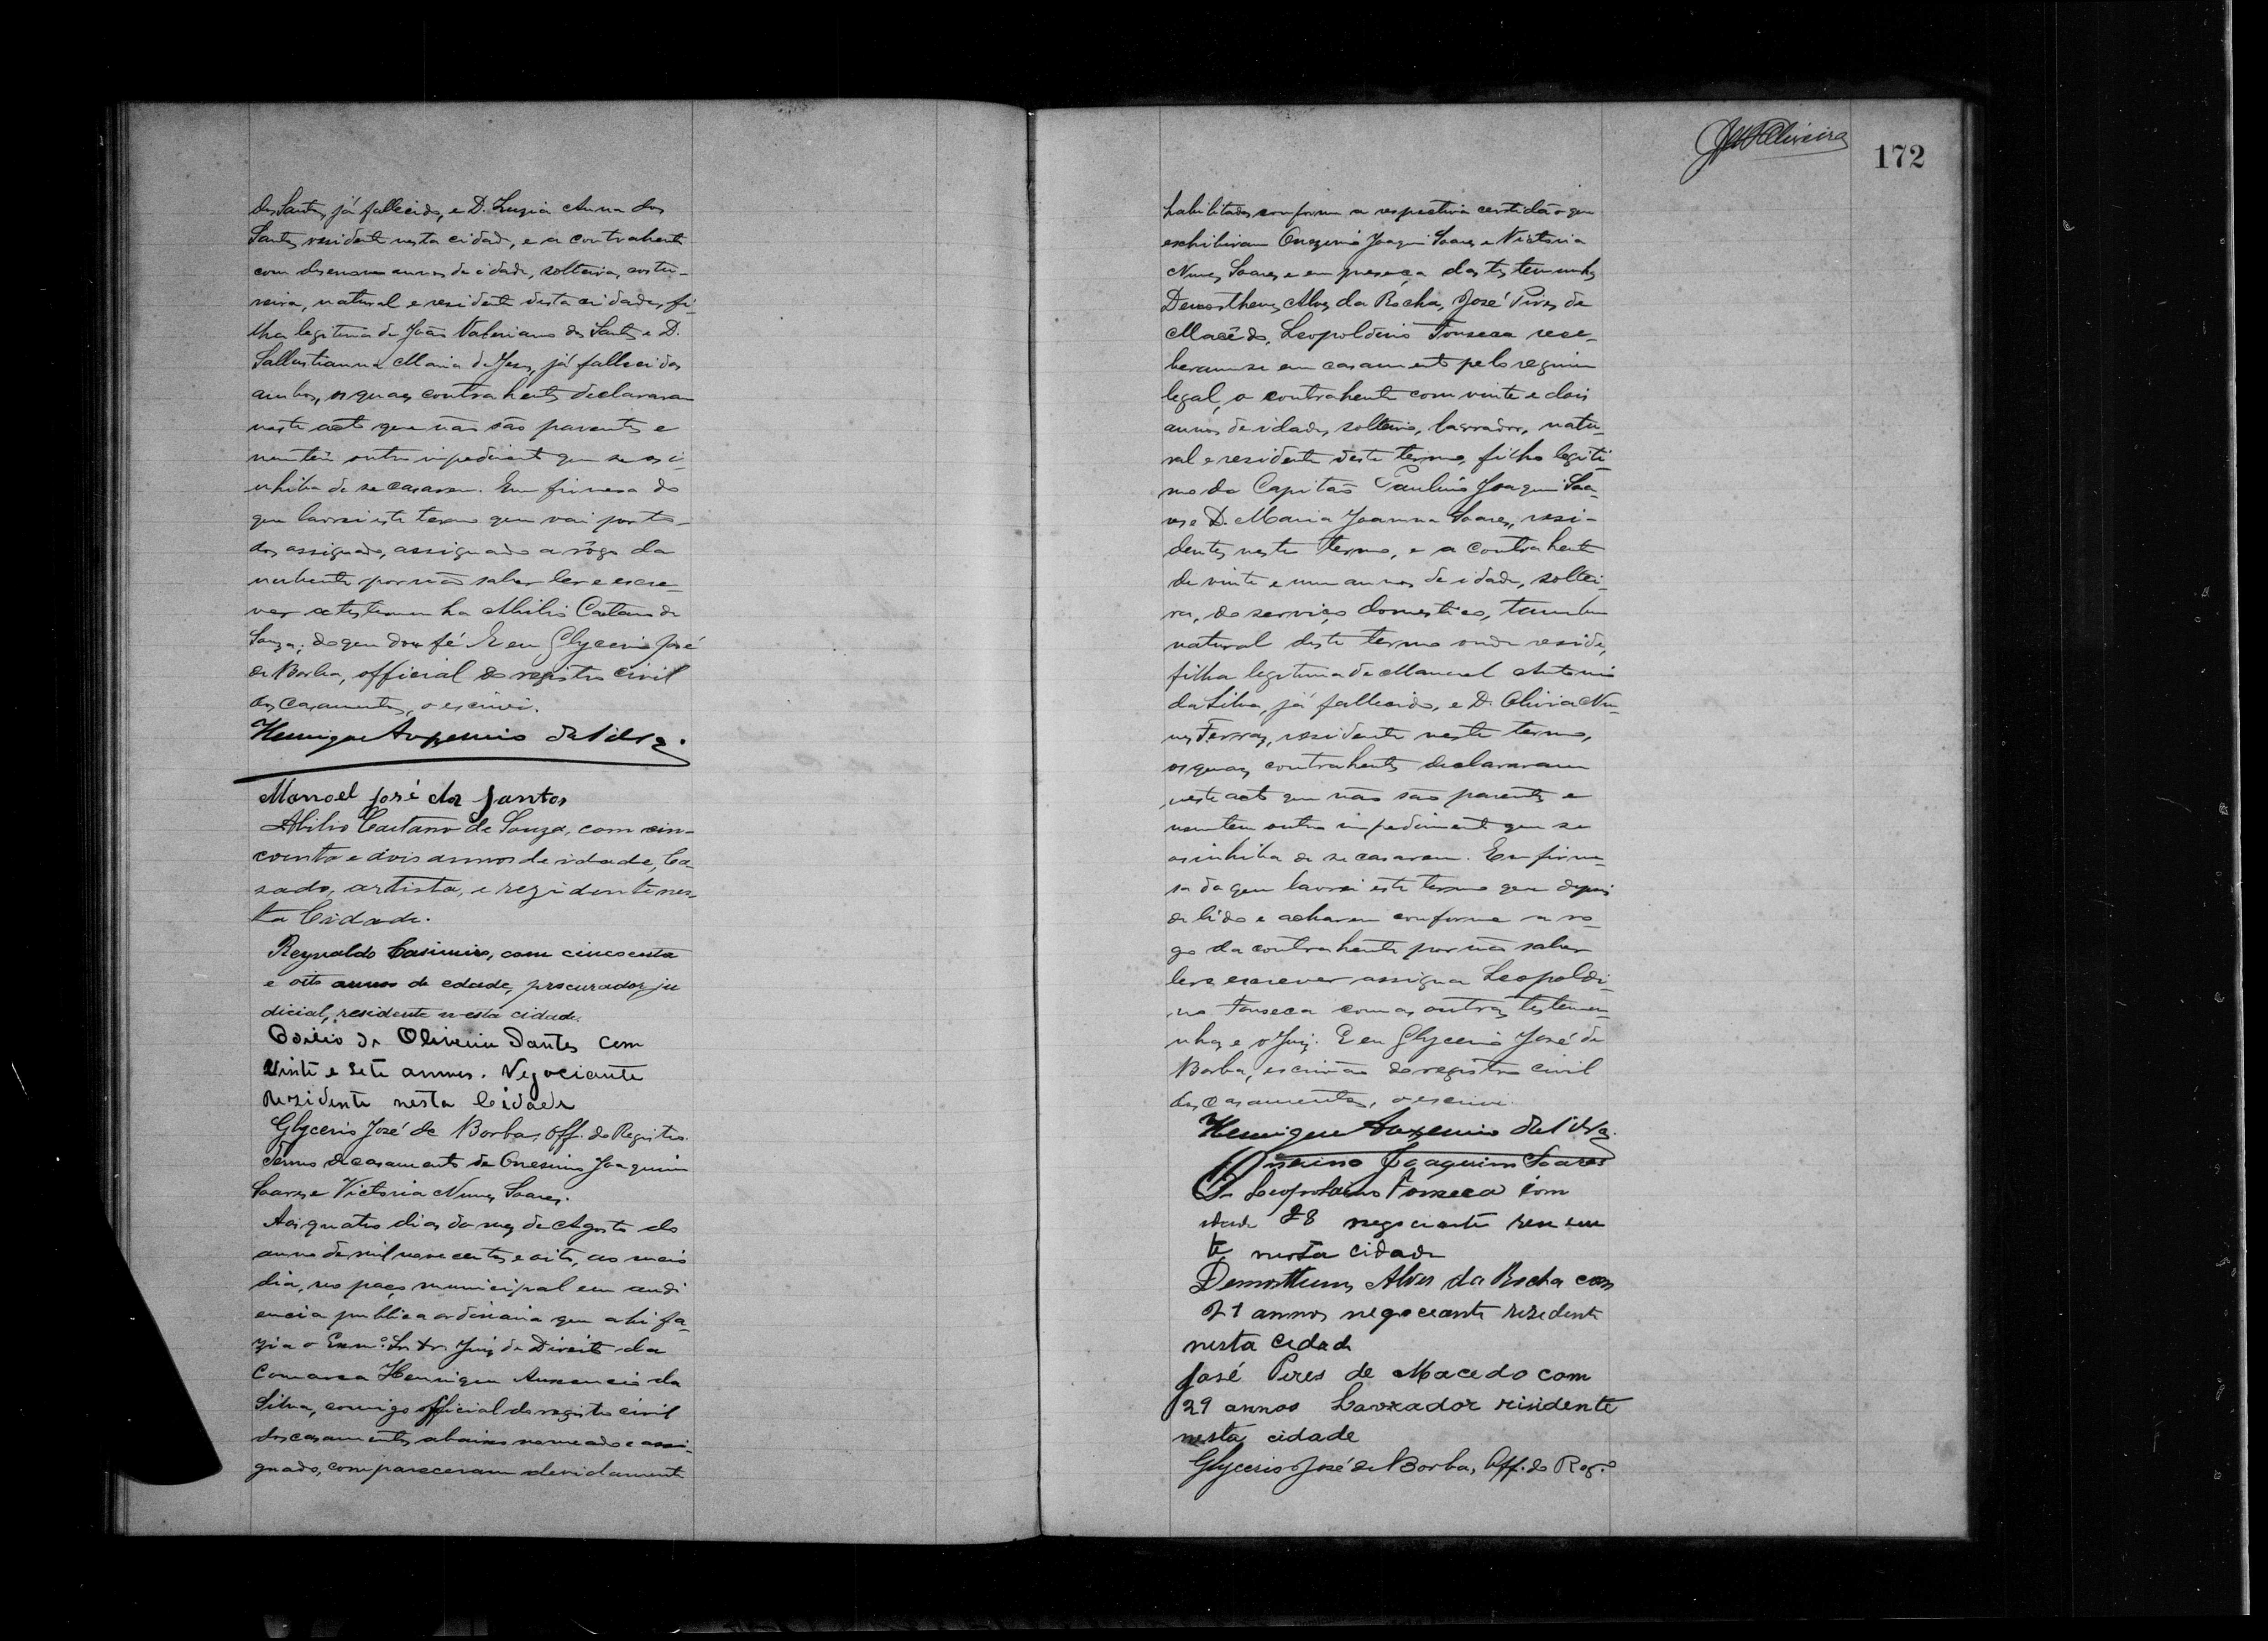 dos Santos, já fallecido, e D. Luzia Anna dos
Santos residente nesta cidade, e a contrahente
com desenove annos de idade, solteira, costu-
reira, natural e residente desta cidade, fi-
lha legitima de João Valeriano dos Santos e D.
Sallustianna Maria de Jesus, já fallecidos
ambos, os quaes contrahentes declararam
neste acto que não são parentes e
nem têm outro impedimento que se os i-
nhiba de se casarem. Em firmesa do
que lavrei este termo que vai por to-
dos assignado, assignado a rôgo da
nubente por não saber ler e escre-
ver a testemunha Abilio Caetano de
Souza; do que dou fé. E eu Glycerio José
de Borba, official do registro civil
dos casamentos, o escrevi.
Henrique Auxencio da Silva.
Manoel José dos Santos
Abilio Caetano de Souza, com cin-
coenta e dois annos de idade, Ca-
sado, artista, e rezidente nes-
ta Cidade.
Reynaldo Casimiro, com cincoenta
e oito annos de edade, procurador ju
dicial, residente nesta cidade.
de Oliveira Dantes com
Vinte e sete annos. Negociante
Rezidente nesta Cidade
Glycerio José de Borba, Off. do Registro.
Termo de casamento de Onesimo Joaquim
Soares e Victoria Nunes Soares.
Aos quatro dias do mez de Agosto do
anno de mil novecentos e oito, ao meio
dia, no paço municipal em audi
encia publica ordinaria que ahi fa-
zia o Exmo. Sr. Dr. Juiz de Direito da
Comarca Henrique Auxencio da
Silva, comigo official do registro civil
dos casamentos abaixo nomeado e assi-
gnado, compareceram devidamente
JMOliveira
172
habilitados conforme a respectiva certidão que
exhibiram Onezimo Joaquim Soares e Victoria
Nunes Soares e em presença das testemunhas
Demosthenes Alves da Rocha, José Pires de
Macêdo, Leopoldino Fonseca rece-
beram-se em casamento pelo regimen
legal, o contrahente com vinte e dois
annos de idade, solteiro, lavrador, natu-
ral e residente deste termo, filho legiti-
mo do Capitão Paulino Joaquim Soa-
res e D. Maria Joanna Soares, resi-
dentes neste termo, e a contrahente
de vinte e um annos de idade, soltei-
ra, do serviço domestico, tambem
natural deste termo onde reside,
filha legitima de Manoel Antonio
da Silva, já fallecido, e D. Olivia Nu-
nes Ferraz, residente neste termo,
os quaes contrahentes declararam
neste acto que não são parentes e
nem tem outro impedimento que se
os inhiba de se casarem. Em firme-
sa do que lavrei este termo que depois
de lido e acharem conforme a ro-
go da contrahente por não saber
ler e escrever assigna Leopoldi-
no Fonseca com as outras testemu-
nhas e o Juiz. E eu Glycerio José de
Borba, escrivão do registro civil
dos casamentos, o escrevi.
Henrique Auxencio da Silva.
Onesimo Joaquim Soares
Leopoldino Fonseca com
idade 28 negociante
te nesta cidade
Demosthenes Alves da Rocha com
21 annos negoceante residente
nesta cidade
José Peres de Macedo com
29 annos Lavrador risidente
nesta cidade
Glycerio José de Borba, Off. do Reg.º